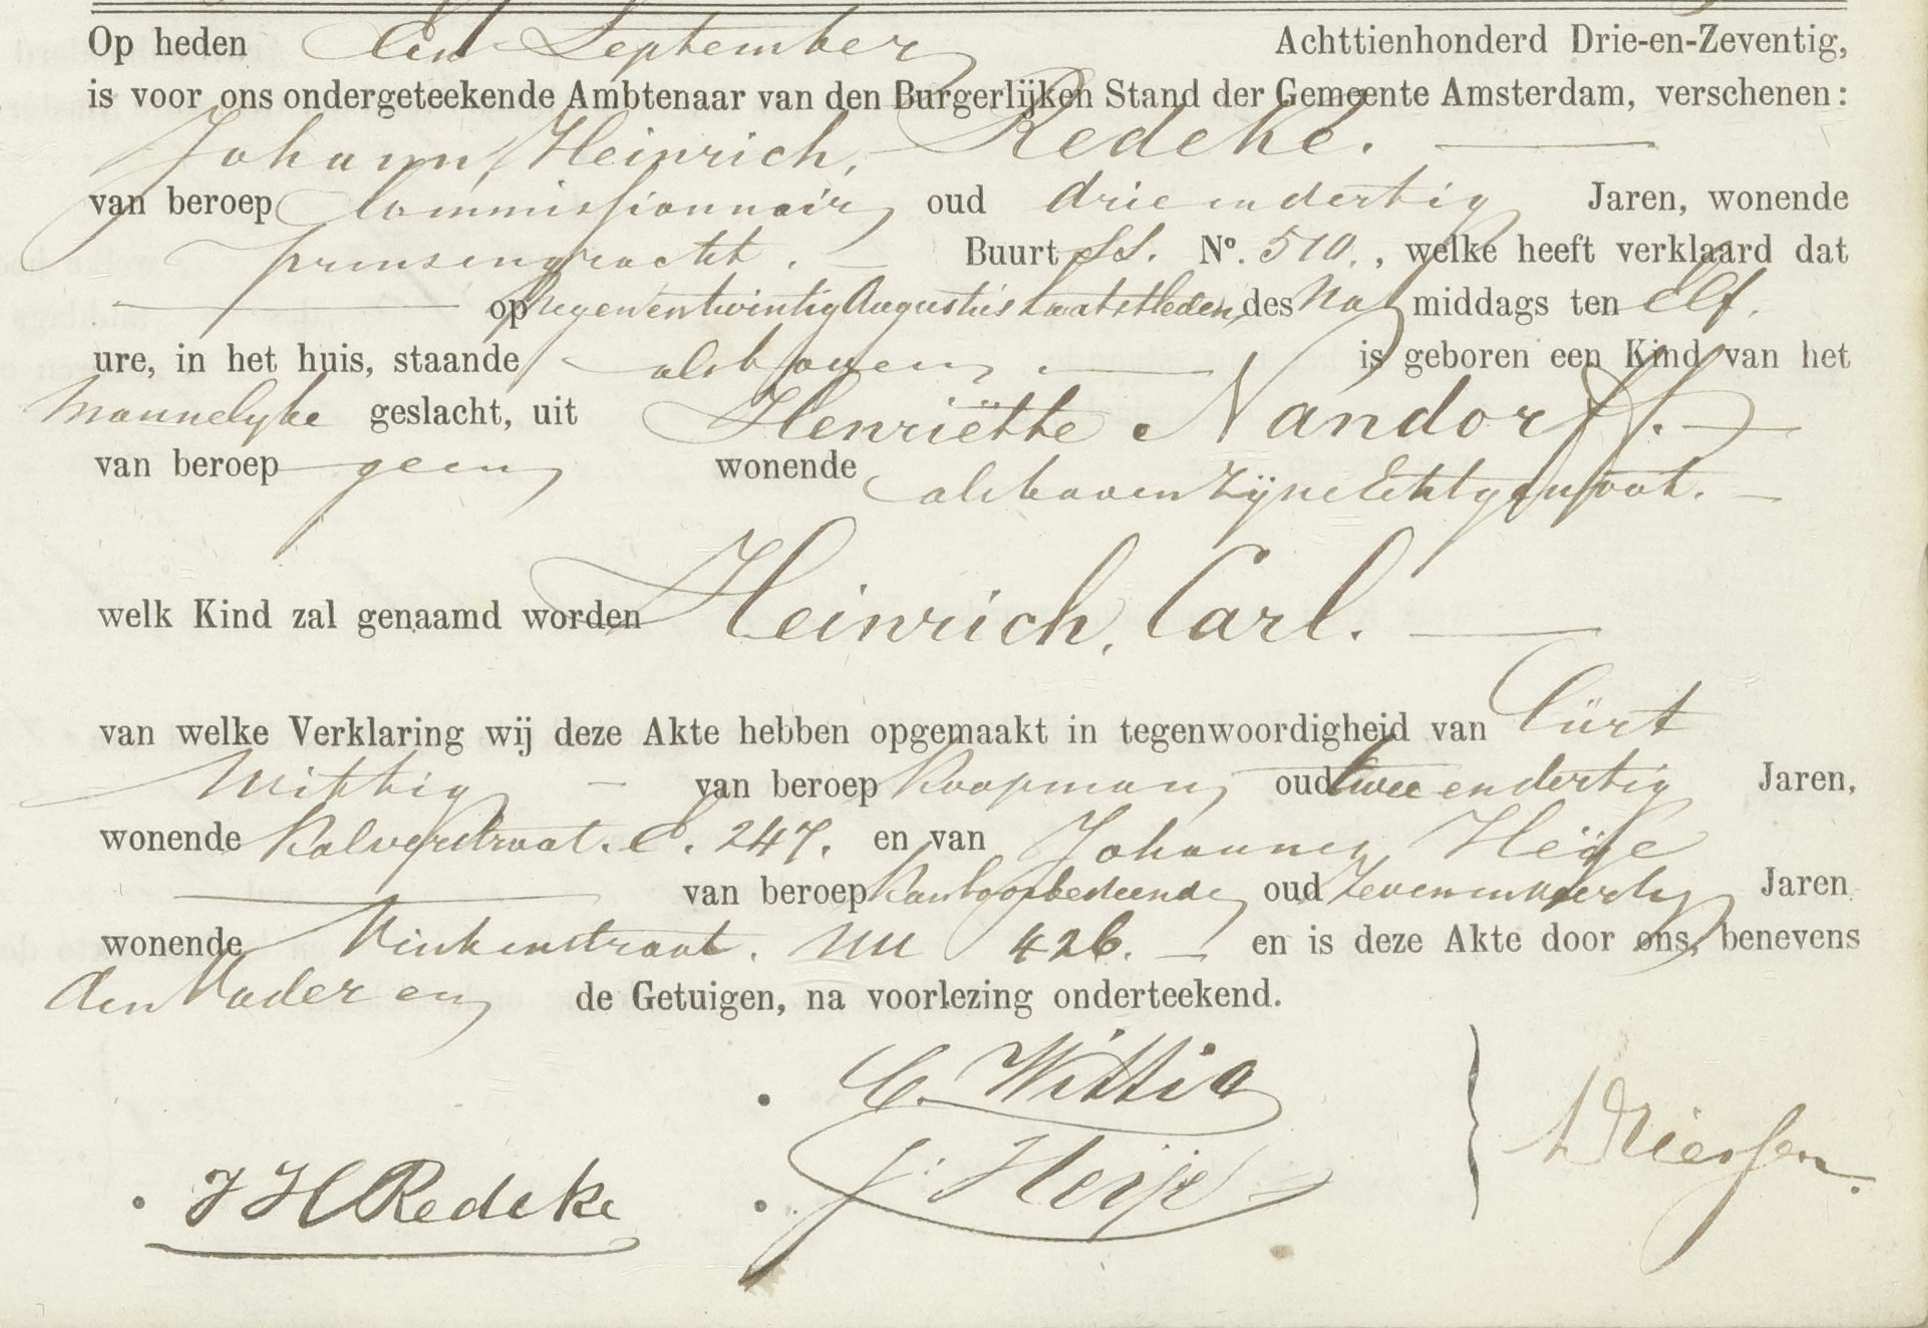 Op heden Een September Achttienhonderd Drie-en-Zeventig,
is voor ons ondergeteekende Ambtenaar van den Burgerlijken Stand der Gemeente Amsterdam, verschenen:
Johann, Heinrich, Redeke.
van beroep Commissionnair oud drie en dertig Jaren, wonende
prinsengracht. Buurt SS. No. 510., welke heeft verklaard dat
op Negenentwintig Augustus laatstleden des Na middags ten Elf
ure, in het huis, staande als boven. is geboren een Kind van het
Mannelyke geslacht, uit Henriëtte Nandorff.
van beroep geen wonende als boven zijne Echtgenoot.
welk Kind zal genaamd worden Heinrich, Carl.
van welke Verklaring wij deze Akte hebben opgemaakt in tegenwoordigheid van Cürt
Wittig van beroep Koopman oud twee en dertig Jaren,
wonende Kalverstraat. E. 247. en van Johannes Heije
van beroep Kantoorbediende oud Zevenenveertig Jaren
wonende Vinkenstraat. NN 426. en is deze Akte door ons, benevens
den Vader en de Getuigen, na voorlezing onderteekend.
C. Wittig
J. Heije
J H Redeke